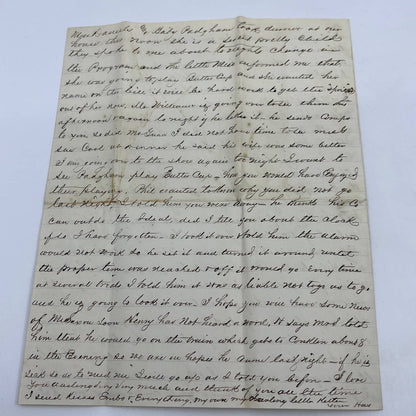 Mess Hannah & Baby Padgham took dinner at our
house this noon she is a little pretty child
they spoke to me about to nights Change in
the Program and the little Miss informed me that
she was going to play Buttercup and she wanted her
name on the bill it will be hard work to get the
out of her now. Mr Williams is going over to see them this
afternoon & again to night if he likes it he sends Comps
to you So did Mc I did not have time to a meal
saw Cool at dinner he said his wife was some better
I am going over to the show again to night I want to
see Padgham play Butter Cup - how you would have Enjoyed
their playing. Phil wanted to know why you did not go
last night I told him you were away - he thinks his Co
can outdo the Ideal, did I tell you about the Clock
if so I have forgotten - I took it over & told him the Alarm
would not work so he set it and turned it around, until
the proper time was reached & off it would go every time
at several trials I told him it was as liable not to go as to go
and he is going to look it over. I hope you will have some news
of soon Henry has not heard a word, He says Mod told
him that he would go on the train which gets to Conklin about 8
in the Evening so we are in hopes he Came last night - if he is
sick so as to need me I will go up as I told you before - I love
you darling very very much and think of you all the time
I send Kisses Embraces & Everything, my own my Darling little Hattie
Your Hus